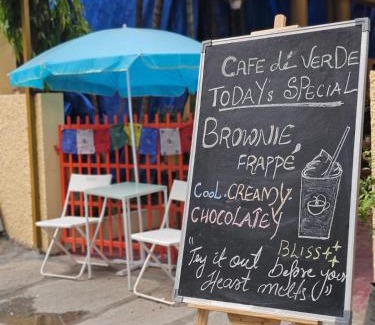 CAFE dé VERDE
TODAY's SPECIAL
BROWNIE
FRAPPÉ
COOL. CREAMY.
CHOCOLATEY
BLISS
"Try it out before your
Heart melts!"